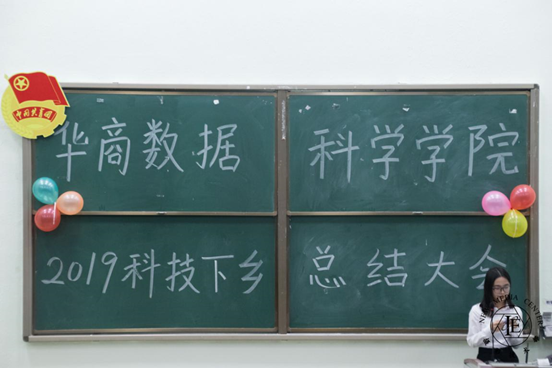 华商数据科学学院
2019科技下乡总结大会
中国共青团